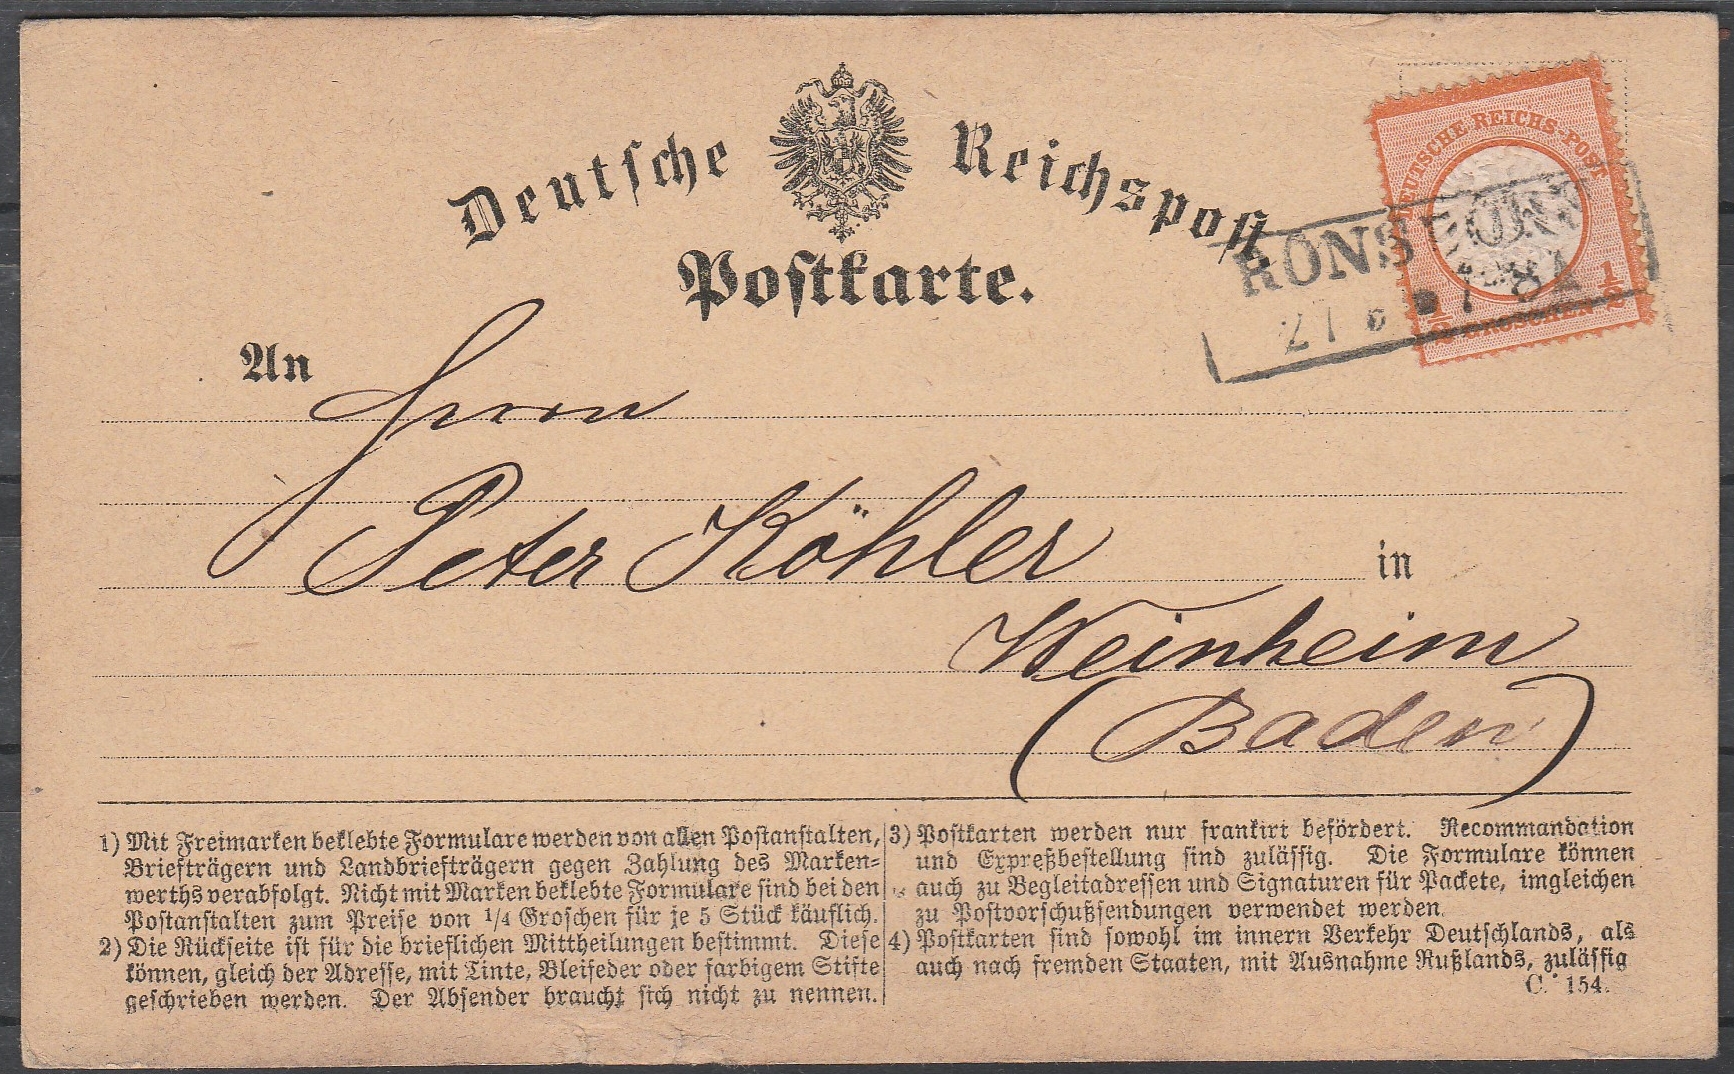 Deutsche Reichspost
Postkarte.
DEUTSCHE REICHS-POST
½ GROSCHEN ½
RONS
27
An
Herrn
Peter Köhler
in
Weinheim
(Baden)
1) Mit Freimarken beklebte Formulare werden von allen Postanstalten,
Briefträgern und Landbriefträgern gegen Zahlung des Marken-
werths verabfolgt. Nicht mit Marken beklebte Formulare sind bei den
Postanstalten zum Preise von 1/4 Groschen für je 5 Stück käuflich.
2) Die Rückseite ist für die brieflichen Mittheilungen bestimmt. Diese
können, gleich der Adresse, mit Tinte, Bleifeder oder farbigem Stifte
geschrieben werden. Der Absender braucht sich nicht zu nennen.
3) Postkarten werden nur frankirt befördert. Recommandation
und Expreßbestellung sind zulässig. Die Formulare können
auch zu Begleitadressen und Signaturen für Packete, imgleichen
zu Postvorschußsendungen verwendet werden.
4) Postkarten sind sowohl im innern Verkehr Deutschlands, als
auch nach fremden Staaten, mit Ausnahme Rußlands, zulässig
C. 154.